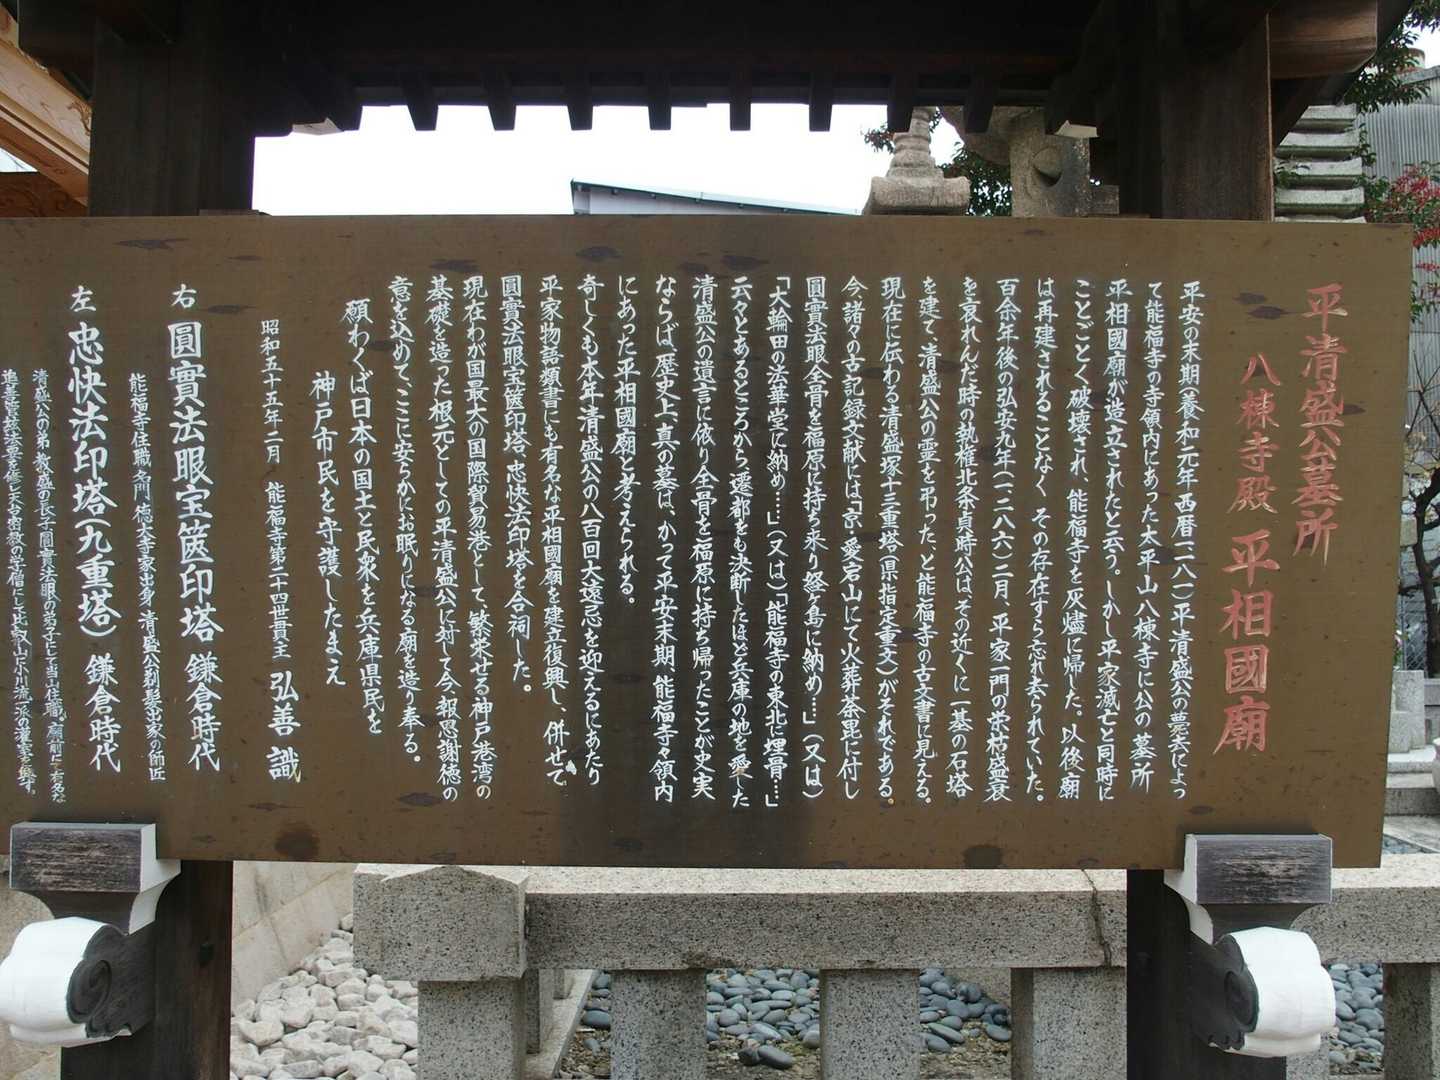 平清盛公墓所
八棟寺殿 平相國廟
平安の末期(養和元年西暦一一八一)平清盛公の薨去によっ
て能福寺の寺領内にあった太平山八棟寺に公の墓所
平相國廟が造立されたと云う。しかし平家滅亡と同時に
ことごとく破壊され、能福寺を灰燼に帰した。以後廟
は再建されることなく その存在すら忘れ去られていた。
百余年後の弘安九年(一二八六)二月、平家一門の栄枯盛衰
を哀れんだ時の執権北条貞時公は、その近くに一基の石塔
を建て清盛公の霊を弔った、と能福寺の古文書に見える。
現在に伝わる清盛塚十三重塔(県指定重文)がそれである。
今諸々の古記録文献には「京・愛宕山にて火葬荼毘に付し
圓實法眼全骨を福原に持ち来り経ヶ島に納め…」(又は)
「大輪田の法華堂に納め……」(又は)「能福寺の東北に埋骨…」
云々とあるところから遷都をも決断したほど兵庫の地を愛した
清盛公の遺言に依り全骨を福原に持ち帰ったことが史実
ならば、歴史上、真の墓は、かって平安末期、能福寺々領内
にあった平相國廟と考えられる。
奇しくも本年清盛公の八百回大遠忌を迎えるにあたり
平家物語類書にも有名な平相國廟を建立復興し、併せて
圓實法眼宝篋印塔、忠快法印塔を合祠した。
現在わが国最大の国際貿易港として、繁栄せる神戸港湾の
基礎を造った根元としての平清盛公に対して今、報恩謝徳の
意を込めて、ここに安らかにお眠りになる廟を造り奉る。
願わくば日本の国土と民衆を兵庫県民を
神戸市民を守護したまえ
昭和五十五年二月 能福寺第二十四世貫主 弘善 識
右 圓實法眼宝篋印塔 鎌倉時代
能福寺住職 名門、徳大寺家出身 清盛公剃髪出家の師匠
左 忠快法印塔(九重塔) 鎌倉時代
清盛公の弟、教盛の長子圓實法眼の弟子にして当山住職。廟前にて有名な